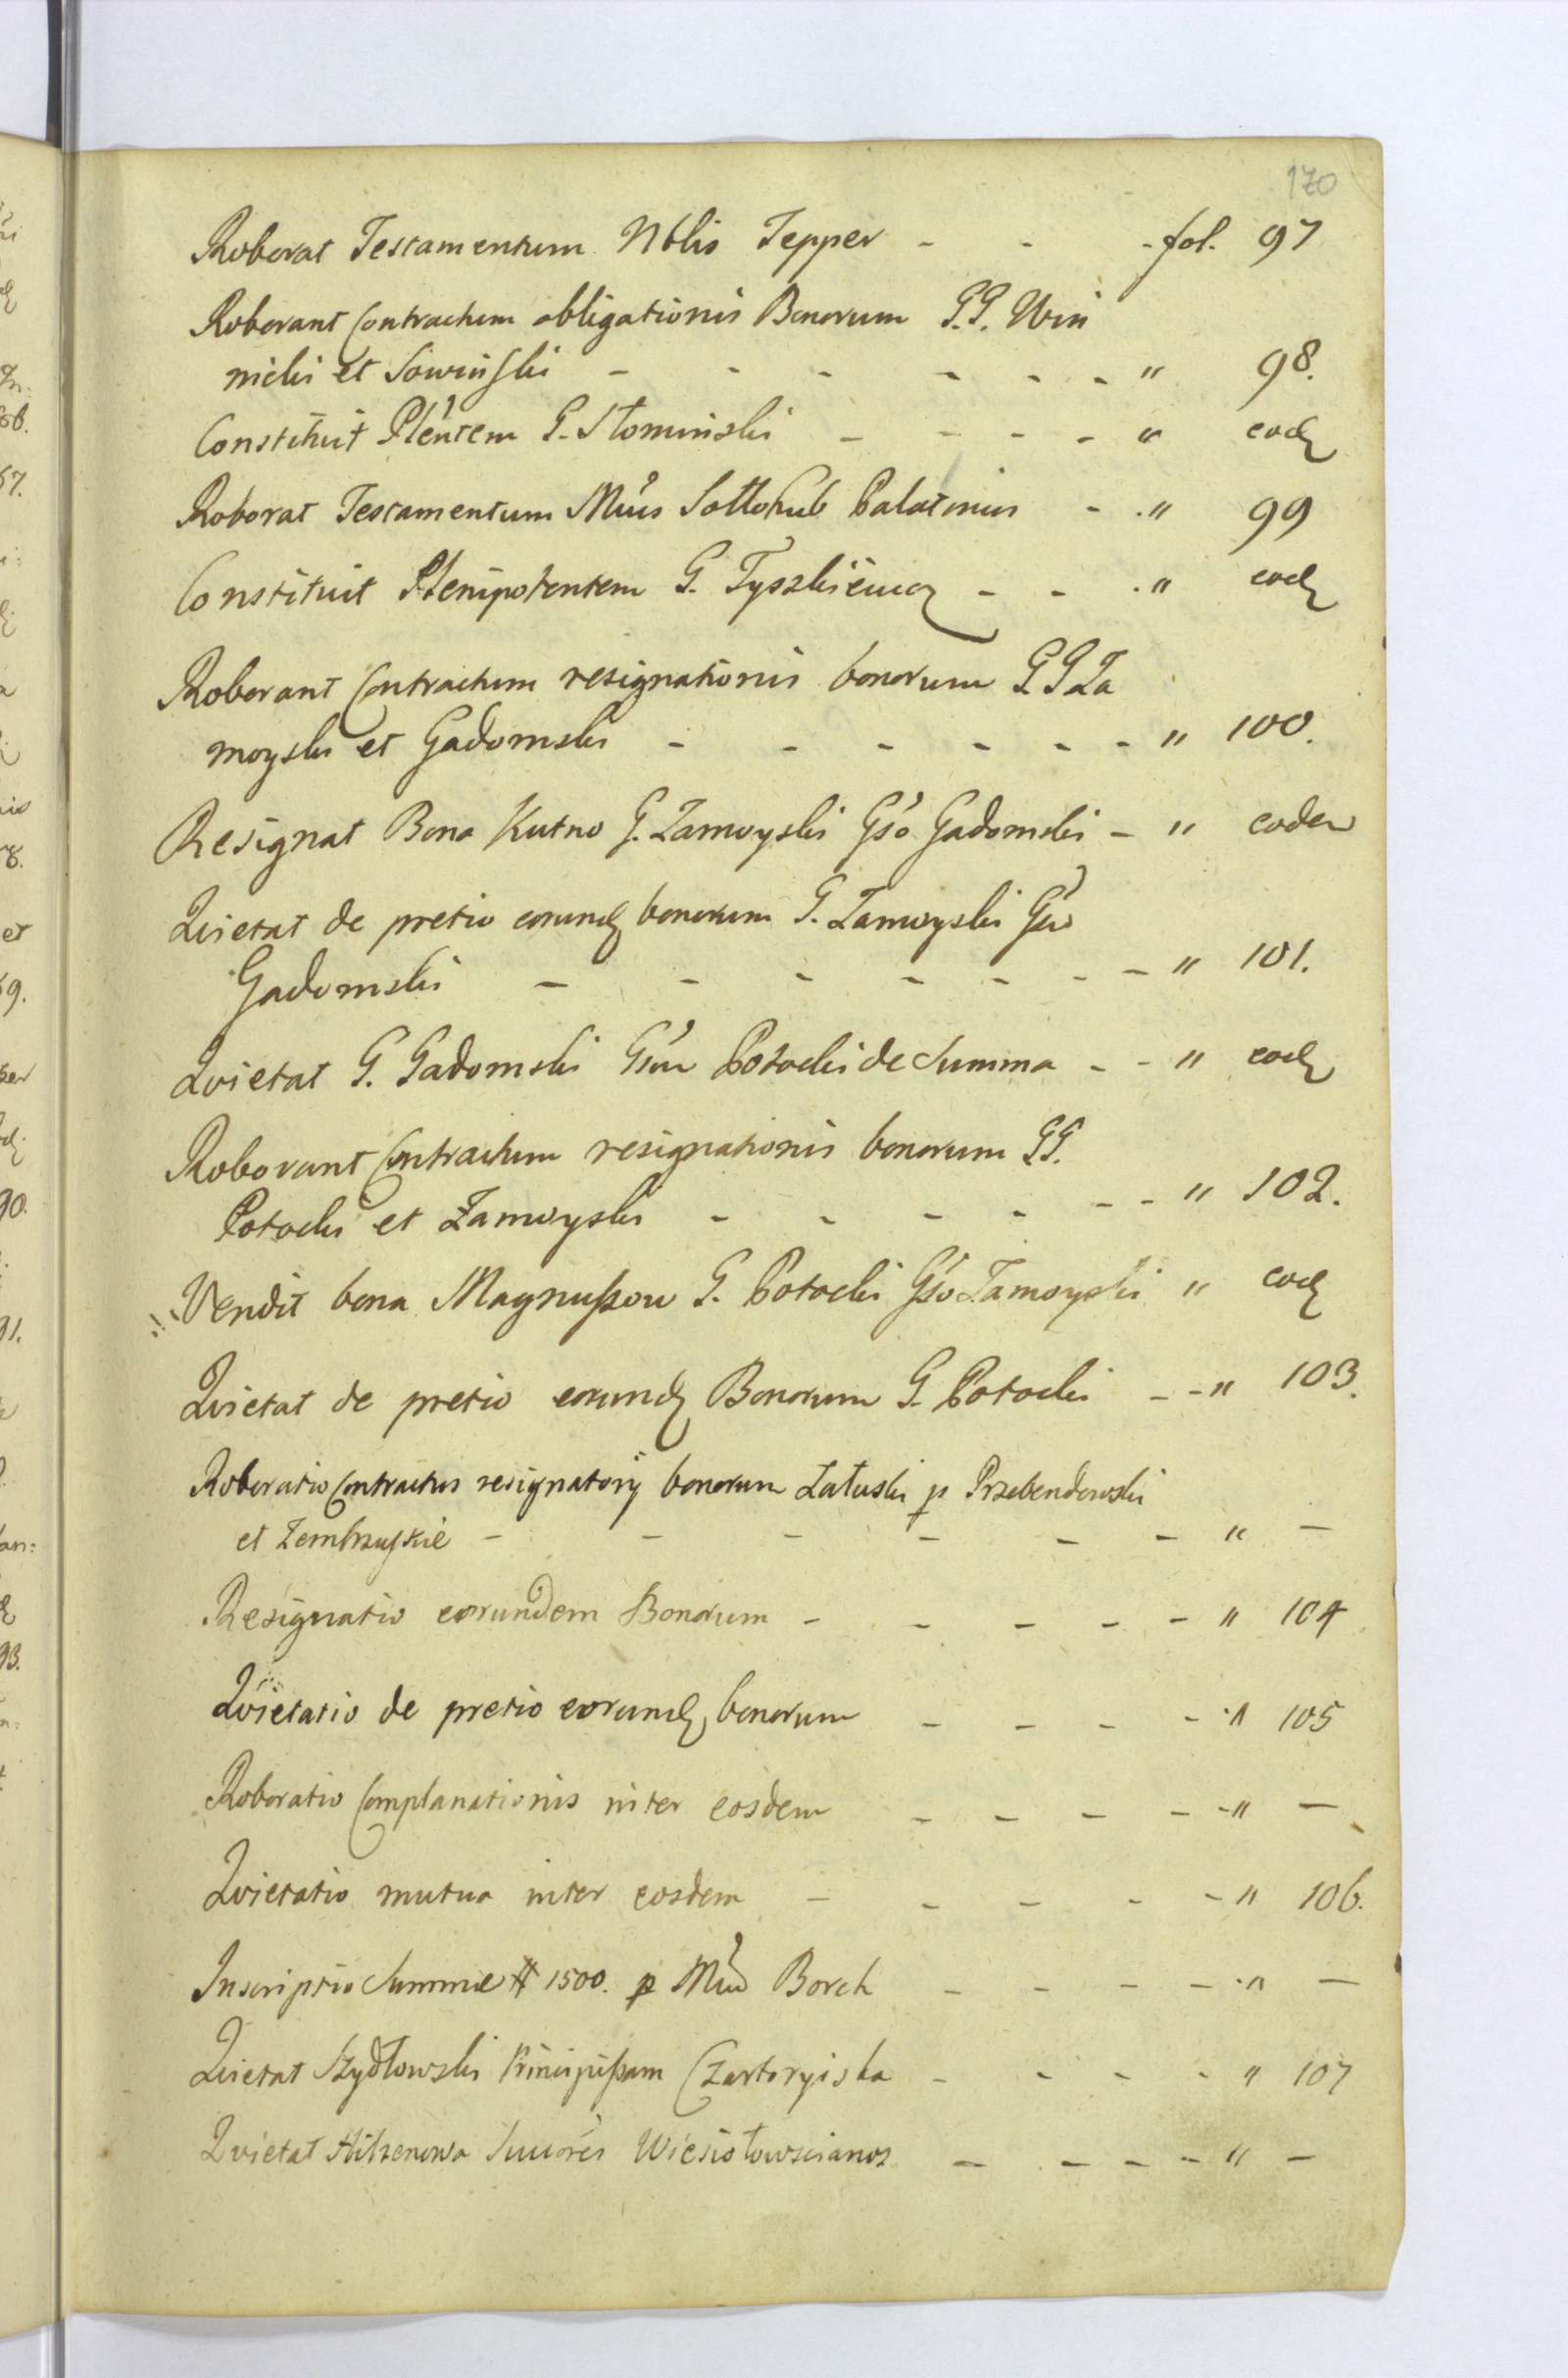 170
Roborat Testamentum Nblis Tepper - - - fol. 97
Roborant Contractum obligationis Bonorum G.G. Win
nicki et Sowinski - - - - - - " 98.
Constituit Plентem G. Słominski - - - - " eod
Roborat Testamentum Mcus Sołłohub Palatinus - - " 99
Constituit Plenipotentem G. Tyszkiewicz - - - " eod
Roborant Contractum resignationis bonorum G G Za
moyski et Gadomski - - - - - - " 100.
Resignat Bona Kutno G. Zamoyski Gso Gadomski - " eodem
Quietat de pretio eorund bonorum G. Zamoyski Gso
Gadomski - - - - - - - " 101.
Quietat G. Gadomski Gsum Potocki de Summa - - " eod
Roborant Contractum resignationis bonorum GG.
Potocki et Zamoyski - - - - - - " 102.
Vendit bona Magnuszow G. Potocki Gso Zamoyski " eod
Quietat de pretio eorund Bonorum G. Potocki - - " 103.
Roboratio Contractus resignatorij bonorum Załuski p Przebendowski
et Zembrzuskie - - - - - - " —
Resignatio eorundem Bonorum - - - - - " 104
Quietatio de pretio eorund bonorum - - - - " 105
Roboratio Complanationis inter eosdem - - - - - " —
Quietatio mutua inter eosdem - - - - - " 106.
Inscriptio Summae # 1500. p Mcum Borch - - - - - " —
Quietat Szydłowski Principissam Czartoryiska - - - - " 107
Quietat Hilzenowa Sucores Wiesiołowscianos - - - - " —